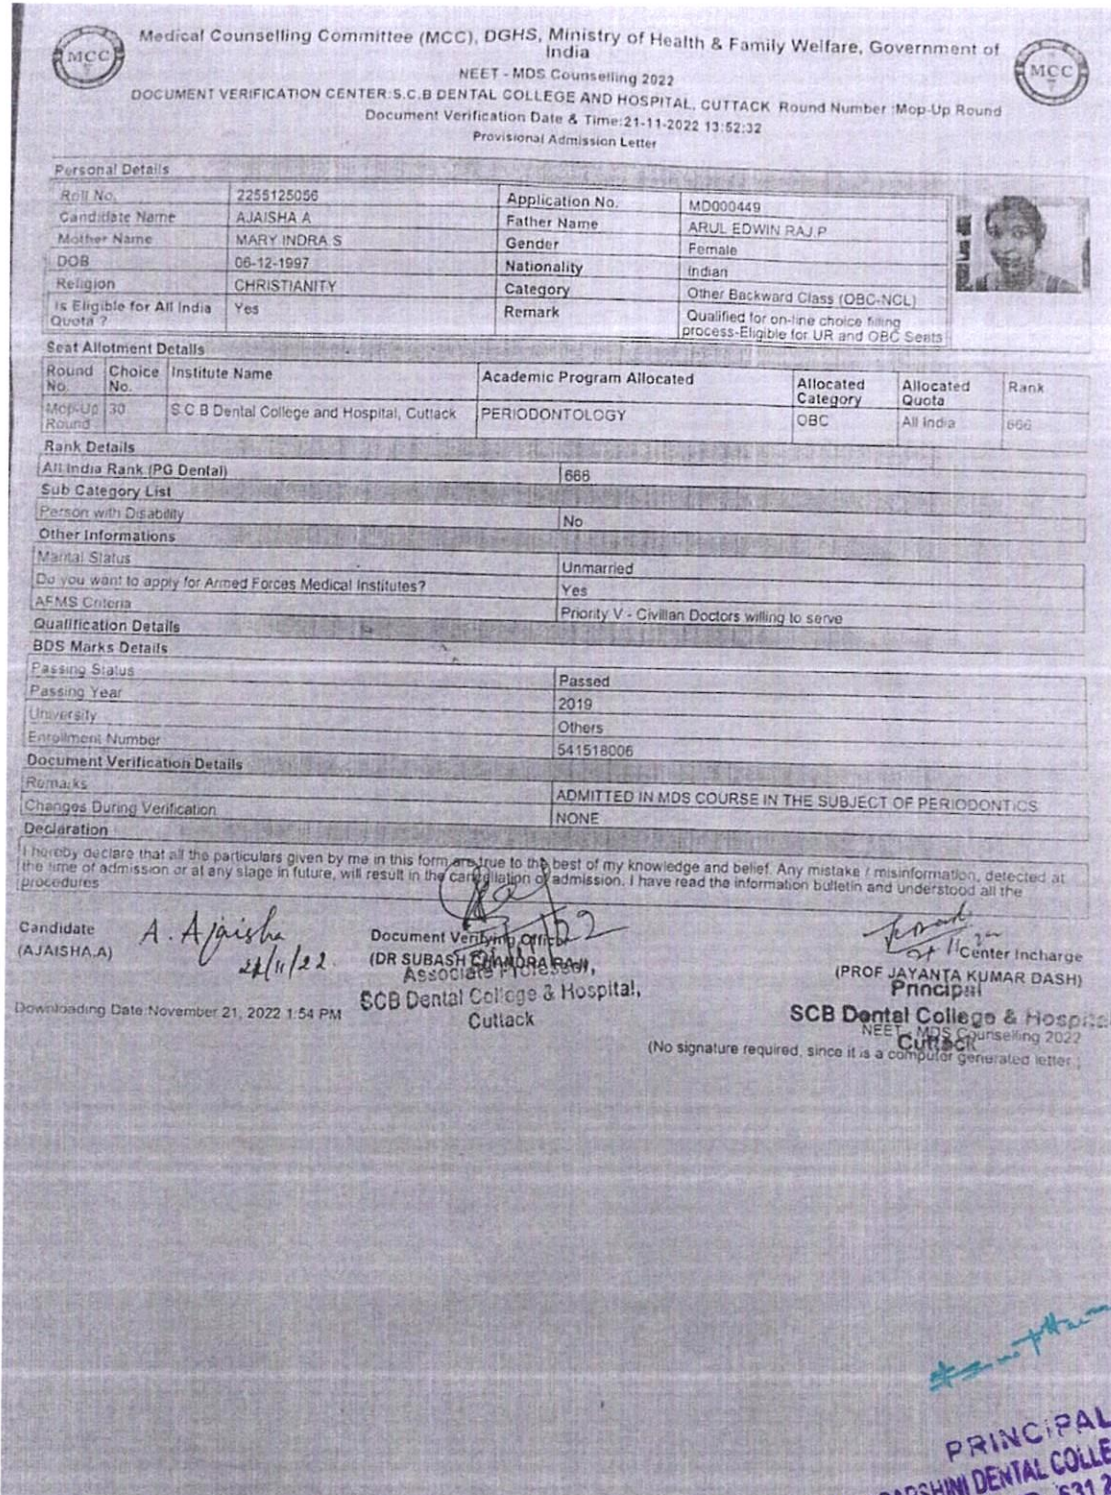 MCC
Medical Counselling Committee (MCC), DGHS, Ministry of Health & Family Welfare, Government of
India
MCC
NEET - MDS Counselling 2022
DOCUMENT VERIFICATION CENTER:S.C.B DENTAL COLLEGE AND HOSPITAL, CUTTACK Round Number :Mop-Up Round
Document Verification Date & Time:21-11-2022 13:52:32
Provisional Admission Letter
Personal Details
Roll No. 2255125056 Application No. MD000449
Candidate Name AJAISHA A Father Name ARUL EDWIN RAJ.P
Mother Name MARY INDRA S Gender Female
DOB 06-12-1997 Nationality Indian
Religion CHRISTIANITY Category Other Backward Class (OBC-NCL)
Is Eligible for All India Yes Remark Qualified for on-line choice filling
Quota ? process-Eligible for UR and OBC Seats
Seat Allotment Details
Round Choice Institute Name Academic Program Allocated Allocated Allocated Rank
No. No. Category Quota
Mop-Up 30 S.C.B Dental College and Hospital, Cuttack PERIODONTOLOGY OBC All India 666
Round
Rank Details
All India Rank (PG Dental) 666
Sub Category List
Person with Disability No
Other Informations
Marital Status Unmarried
Do you want to apply for Armed Forces Medical Institutes? Yes
AFMS Criteria Priority V - Civilian Doctors willing to serve
Qualification Details
BDS Marks Details
Passing Status Passed
Passing Year 2019
University Others
Enrollment Number 541518006
Document Verification Details
Remarks ADMITTED IN MDS COURSE IN THE SUBJECT OF PERIODONTICS
Changes During Verification NONE
Declaration
I hereby declare that all the particulars given by me in this form are true to the best of my knowledge and belief. Any mistake / misinformation, detected at
the time of admission or at any stage in future, will result in the cancellation of admission. I have read the information bulletin and understood all the
procedures
Candidate A. Ajaisha Document Verifying Officer Center Incharge
(AJAISHA.A) 21/11/22. (DR SUBASH CHANDRA RAJ) (PROF JAYANTA KUMAR DASH)
Associate Professor, Principal
SCB Dental College & Hospital, SCB Dental College & Hospital
Cuttack Cuttack
Downloading Date:November 21, 2022 1:54 PM
NEET - MDS Counselling 2022
(No signature required, since it is a computer generated letter.)
PRINCIPAL
DENTAL COLLE